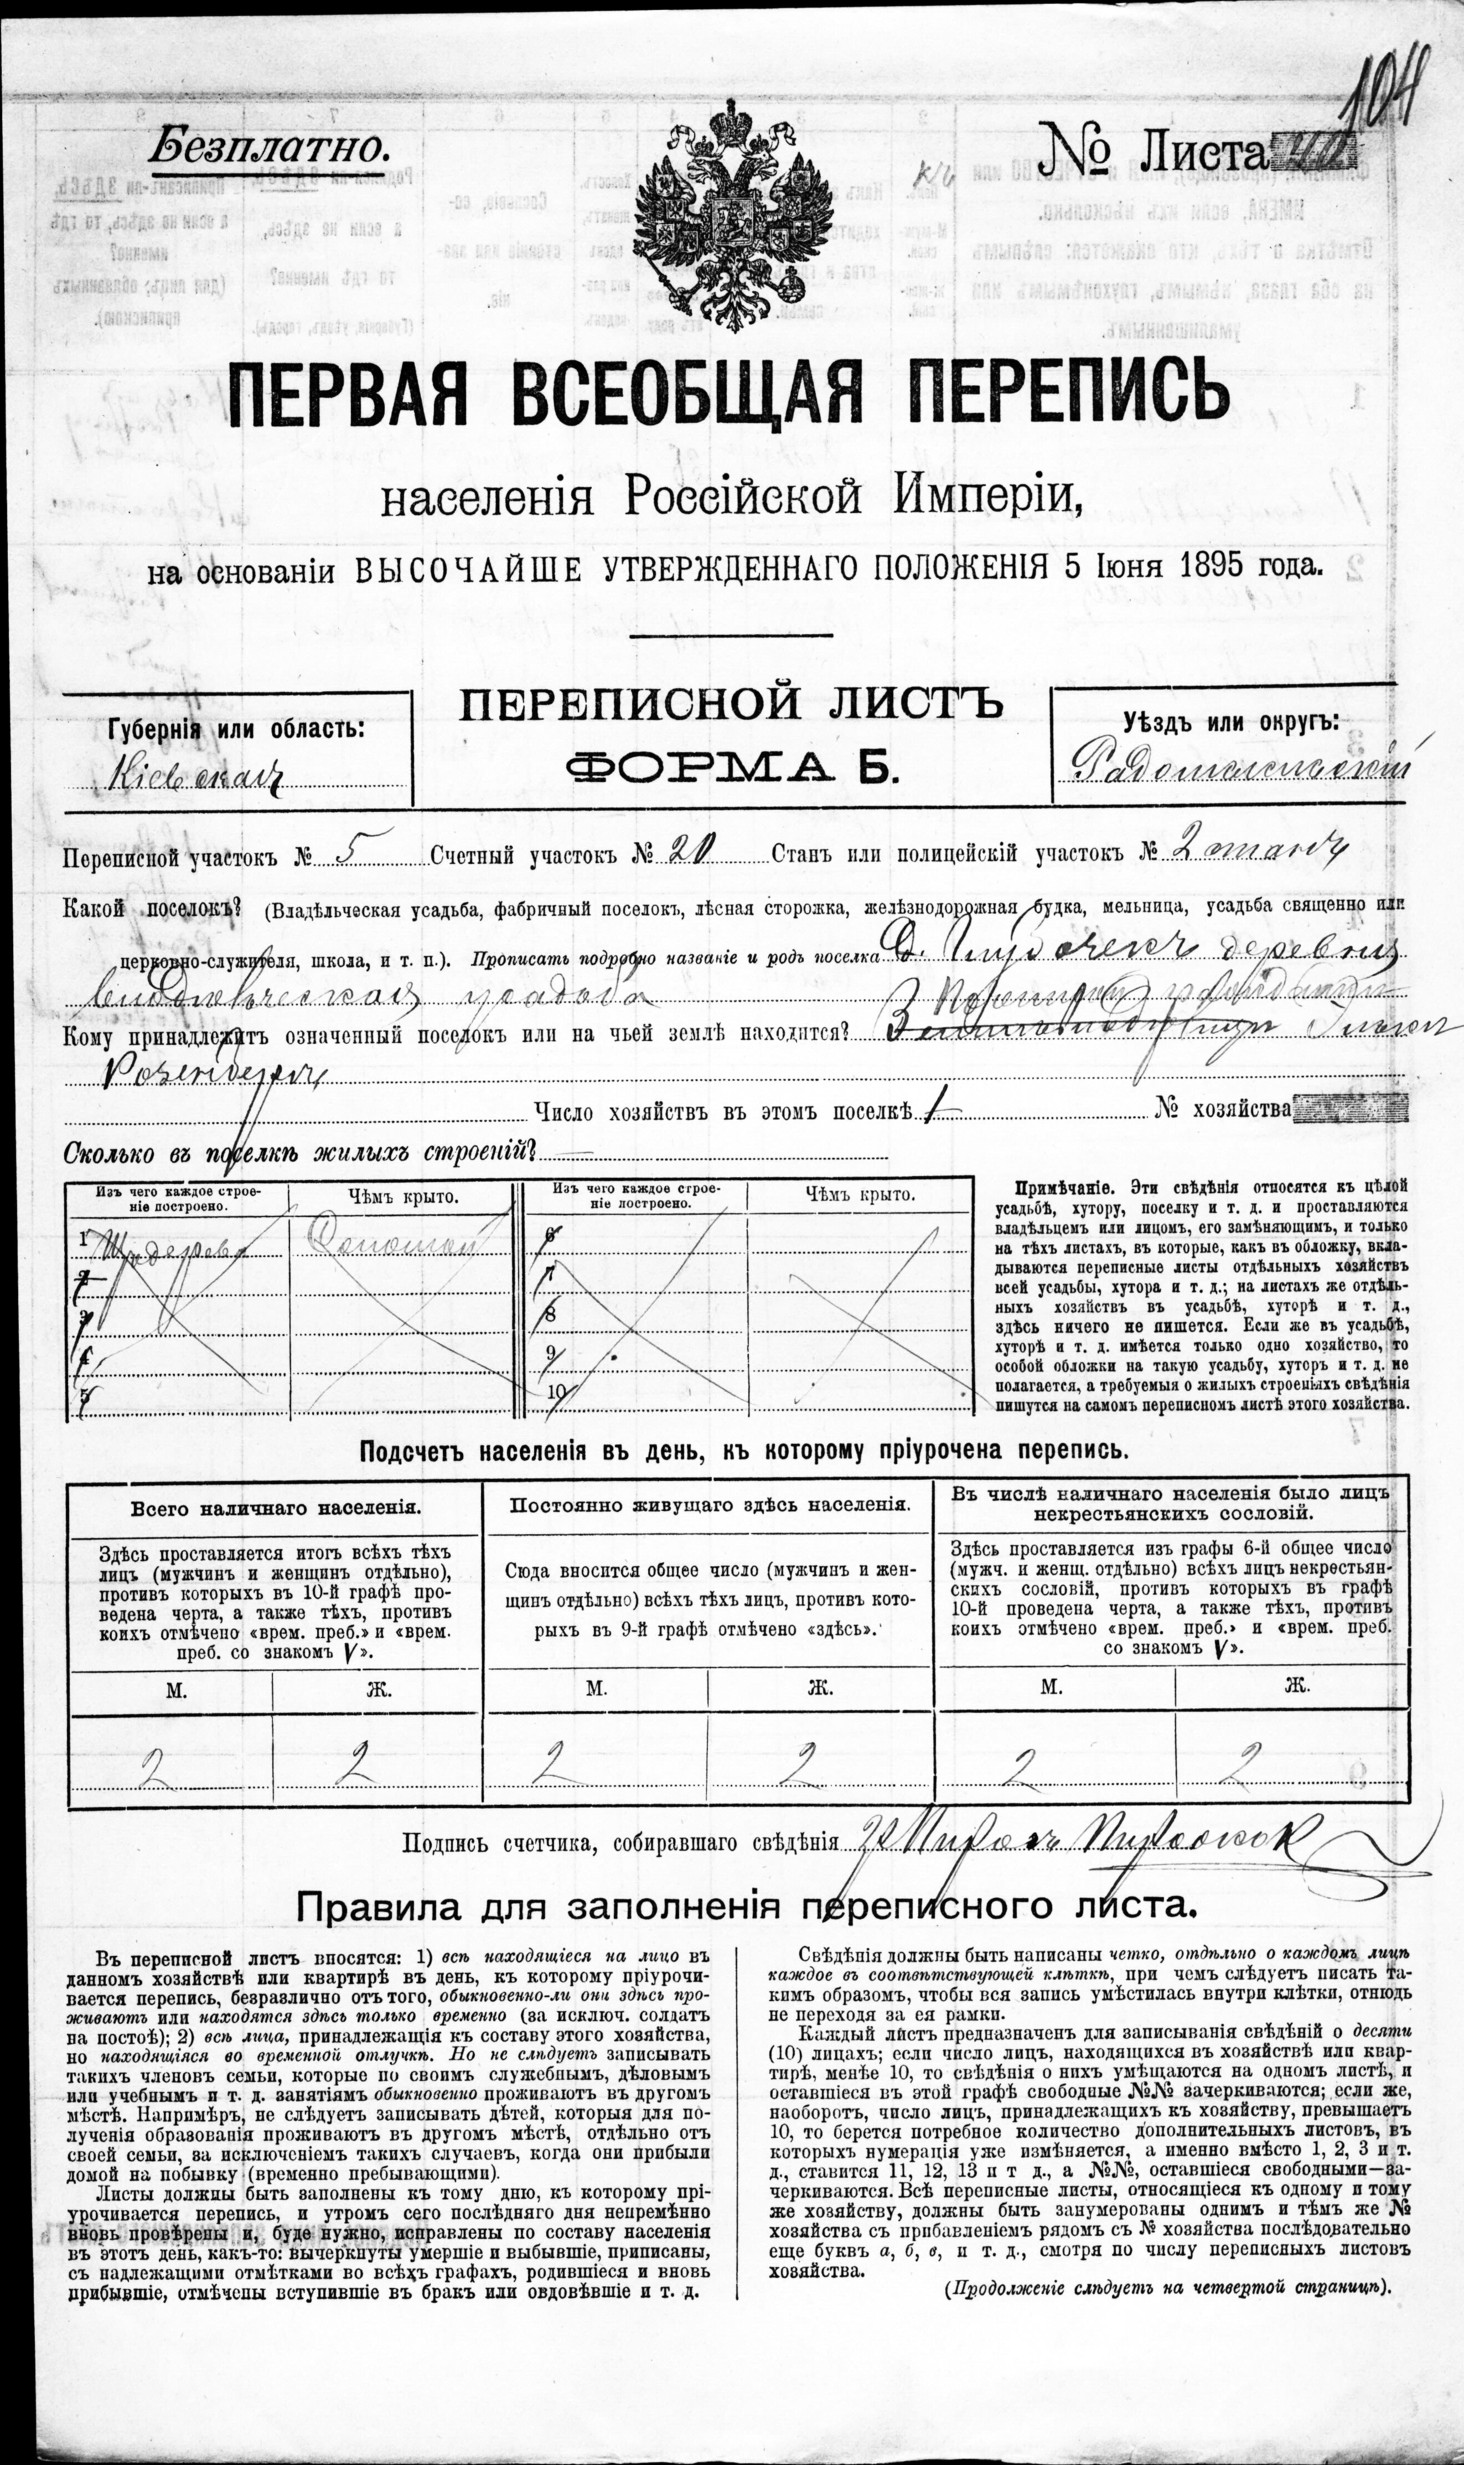 104
Безплатно.
№ Листа
ПЕРВАЯ ВСЕОБЩАЯ ПЕРЕПИСЬ
населенія Россійской Имперіи,
на основаніи ВЫСОЧАЙШЕ УТВЕРЖДЕННАГО ПОЛОЖЕНІЯ 5 Іюня 1895 года.
ПЕРЕПИСНОЙ ЛИСТЪ
ФОРМА Б.
Губернія или область:
Кіевская
Уѣздъ или округъ:
Радомысльскій
Переписной участокъ № 5 Счетный участокъ № 20 Станъ или полицейскій участокъ № 2 станъ
Какой поселокъ? (Владѣльческая усадьба, фабричный поселокъ, лѣсная сторожка, желѣзнодорожная будка, мельница, усадьба священно или
церковно-служителя, школа, и т. п.). Прописать подробно названіе и родъ поселка Д. деревня
владѣльческая усадьба
Кому принадлежитъ означенный поселокъ или на чьей землѣ находится?
Число хозяйствъ въ этомъ поселкѣ 1 № хозяйства
Сколько въ поселкѣ жилыхъ строеній? —
Изъ чего каждое строеніе построено. Чѣмъ крыто. Изъ чего каждое строеніе построено. Чѣмъ крыто.
1 дерево Соломой 6
2 7
3 8
4 9
5 10
Примѣчаніе. Эти свѣдѣнія относятся къ цѣлой
усадьбѣ, хутору, поселку и т. д. и проставляются
владѣльцемъ или лицомъ, его замѣняющимъ, и только
на тѣхъ листахъ, въ которые, какъ въ обложку, вкла-
дываются переписные листы отдѣльныхъ хозяйствъ
всей усадьбы, хутора и т. д.; на листахъ же отдѣль-
ныхъ хозяйствъ въ усадьбѣ, хуторѣ и т. д.,
здѣсь ничего не пишется. Если же въ усадьбѣ,
хуторѣ и т. д. имѣется только одно хозяйство, то
особой обложки на такую усадьбу, хуторъ и т. д. не
полагается, а требуемыя о жилыхъ строеніяхъ свѣдѣнія
пишутся на самомъ переписномъ листѣ этого хозяйства.
Подсчетъ населенія въ день, къ которому пріурочена перепись.
Всего наличнаго населенія.
Здѣсь проставляется итогъ всѣхъ тѣхъ
лицъ (мужчинъ и женщинъ отдѣльно),
противъ которыхъ въ 10-й графѣ про-
ведена черта, а также тѣхъ, противъ
коихъ отмѣчено «врем. преб.» и «врем.
преб. со знакомъ V».
Постоянно живущаго здѣсь населенія.
Сюда вносится общее число (мужчинъ и жен-
щинъ отдѣльно) всѣхъ тѣхъ лицъ, противъ кото-
рыхъ въ 9-й графѣ отмѣчено «здѣсь».
Въ числѣ наличнаго населенія было лицъ
некрестьянскихъ сословій.
Здѣсь проставляется изъ графы 6-й общее число
(мужч. и женщ. отдѣльно) всѣхъ лицъ некрестьян-
скихъ сословій, противъ которыхъ въ графѣ
10-й проведена черта, а также тѣхъ, противъ
коихъ отмѣчено «врем. преб.» и «врем. преб.
со знакомъ V».
М. Ж. М. Ж. М. Ж.
2 2 2 2 2 2
Подпись счетчика, собиравшаго свѣдѣнія
Правила для заполненія переписного листа.
Въ переписной листъ вносятся: 1) всѣ находящіеся на лицо въ
данномъ хозяйствѣ или квартирѣ въ день, къ которому пріурочи-
вается перепись, безразлично отъ того, обыкновенно-ли они здѣсь про-
живаютъ или находятся здѣсь только временно (за исключ. солдатъ
на постоѣ); 2) всѣ лица, принадлежащія къ составу этого хозяйства,
но находящіяся во временной отлучкѣ. Но не слѣдуетъ записывать
такихъ членовъ семьи, которые по своимъ служебнымъ, дѣловымъ
или учебнымъ и т. д. занятіямъ обыкновенно проживаютъ въ другомъ
мѣстѣ. Напримѣръ, не слѣдуетъ записывать дѣтей, которыя для по-
лученія образованія проживаютъ въ другомъ мѣстѣ, отдѣльно отъ
своей семьи, за исключеніемъ такихъ случаевъ, когда они прибыли
домой на побывку (временно пребывающими).
Листы должны быть заполнены къ тому дню, къ которому прі-
урочивается перепись, и утромъ сего послѣдняго дня непремѣнно
вновь провѣрены и, буде нужно, исправлены по составу населенія
въ этотъ день, какъ-то: вычеркнуты умершіе и выбывшіе, приписаны,
съ надлежащими отмѣтками во всѣхъ графахъ, родившіеся и вновь
прибывшіе, отмѣчены вступившіе въ бракъ или овдовѣвшіе и т. д.
Свѣдѣнія должны быть написаны четко, отдѣльно о каждомъ лицѣ
каждое въ соотвѣтствующей клѣткѣ, при чемъ слѣдуетъ писать та-
кимъ образомъ, чтобы вся запись умѣстилась внутри клѣтки, отнюдь
не переходя за ея рамки.
Каждый листъ предназначенъ для записыванія свѣдѣній о десяти
(10) лицахъ; если число лицъ, находящихся въ хозяйствѣ или квар-
тирѣ, менѣе 10, то свѣдѣнія о нихъ умѣщаются на одномъ листѣ, и
оставшіеся въ этой графѣ свободные №№ зачеркиваются; если же,
наоборотъ, число лицъ, принадлежащихъ къ хозяйству, превышаетъ
10, то берется потребное количество дополнительныхъ листовъ, въ
которыхъ нумерація уже измѣняется, а именно вмѣсто 1, 2, 3 и т.
д., ставится 11, 12, 13 и т д., а №№, оставшіеся свободными—за-
черкиваются. Всѣ переписные листы, относящіеся къ одному и тому
же хозяйству, должны быть занумерованы однимъ и тѣмъ же №
хозяйства съ прибавленіемъ рядомъ съ № хозяйства послѣдовательно
еще буквъ а, б, в, и т. д., смотря по числу переписныхъ листовъ
хозяйства.
(Продолженіе слѣдуетъ на четвертой страницѣ).